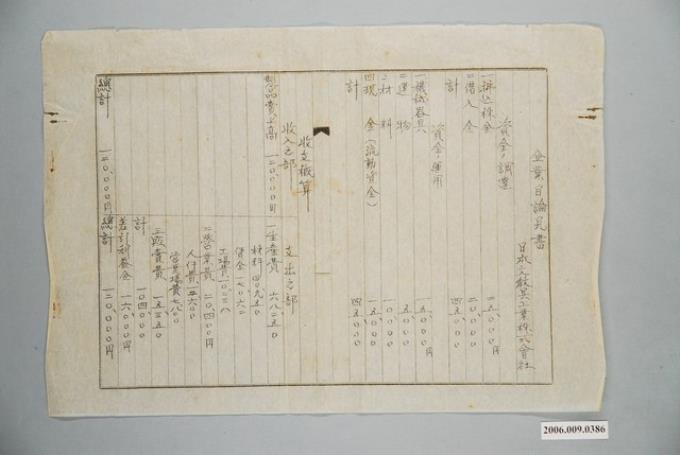 企業目論見書
日本文教具工業株式會社
資金ノ調達
一拂込株金 二五、〇〇〇円
二借入金 二〇、〇〇〇
計 四五、〇〇〇
資金ノ運用
一機械器具 一五、〇〇〇円
二建物 五、〇〇〇
三材料 一〇、〇〇〇
四現金(流動資金) 一五、〇〇〇
計 四五、〇〇〇
收支概算
收入之部
製品賣上高 一二〇、〇〇〇円
總計 一二〇、〇〇〇円
支出之部
一生產費 六八二五〇
材料 四〇、九五〇
賃金 一七〇六〇
工場費
二營業費 二〇、四〇〇円
人件費
營業場費 七八〇〇
三販賣費 一五三五〇
計 一〇四、〇〇〇
差引利益金 一六、〇〇〇円
總計 一二〇、〇〇〇円
2006.009.0386